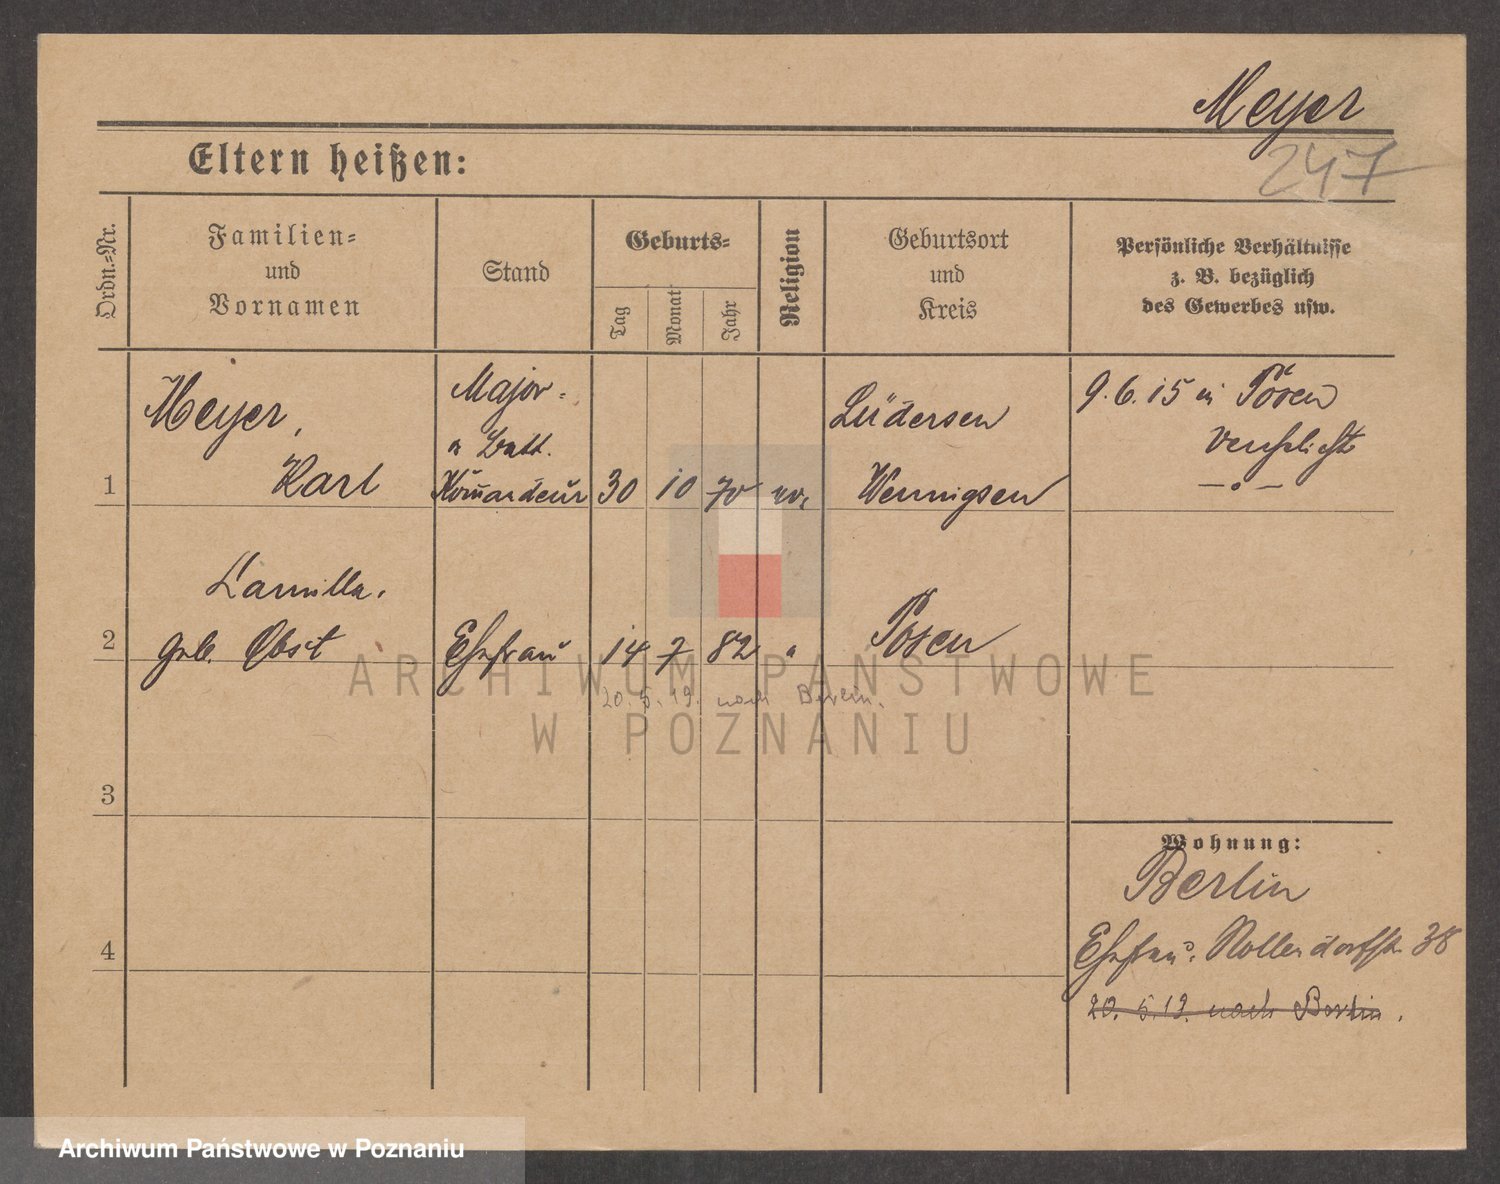 Meyer
247
Eltern heißen:
Ordn.=Nr.
Familien=
und
Vornamen
Stand
Geburts=
Tag
Monat
Jahr
Religion
Geburtsort
und
Kreis
Persönliche Verhältnisse
z. B. bezüglich
des Gewerbes usw.
1
Meyer,
Karl
Major
u Batl.
Kom̄andeur
30 10 70
Lüdersen
Wennigsen
9.6.15 in Posen
2
Camilla,
geb. Obst
Ehefrau
14 7 82 "
Posen
20.5.19. nach Berlin.
3
Wohnung:
Berlin
Ehefrau: Nollendorfstr. 38
20.5.19. nach Berlin.
4
ARCHIWUM PAŃSTWOWE
W POZNANIU
Archiwum Państwowe w Poznaniu